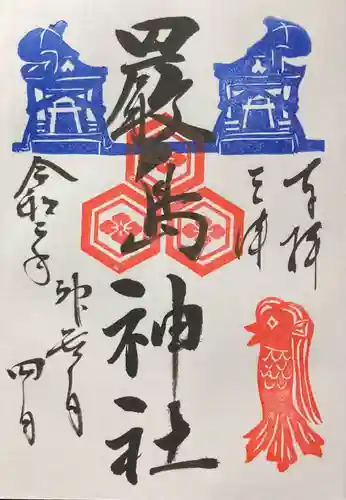 奉拝
三津
嚴島神社
令和二年
神無月
四日